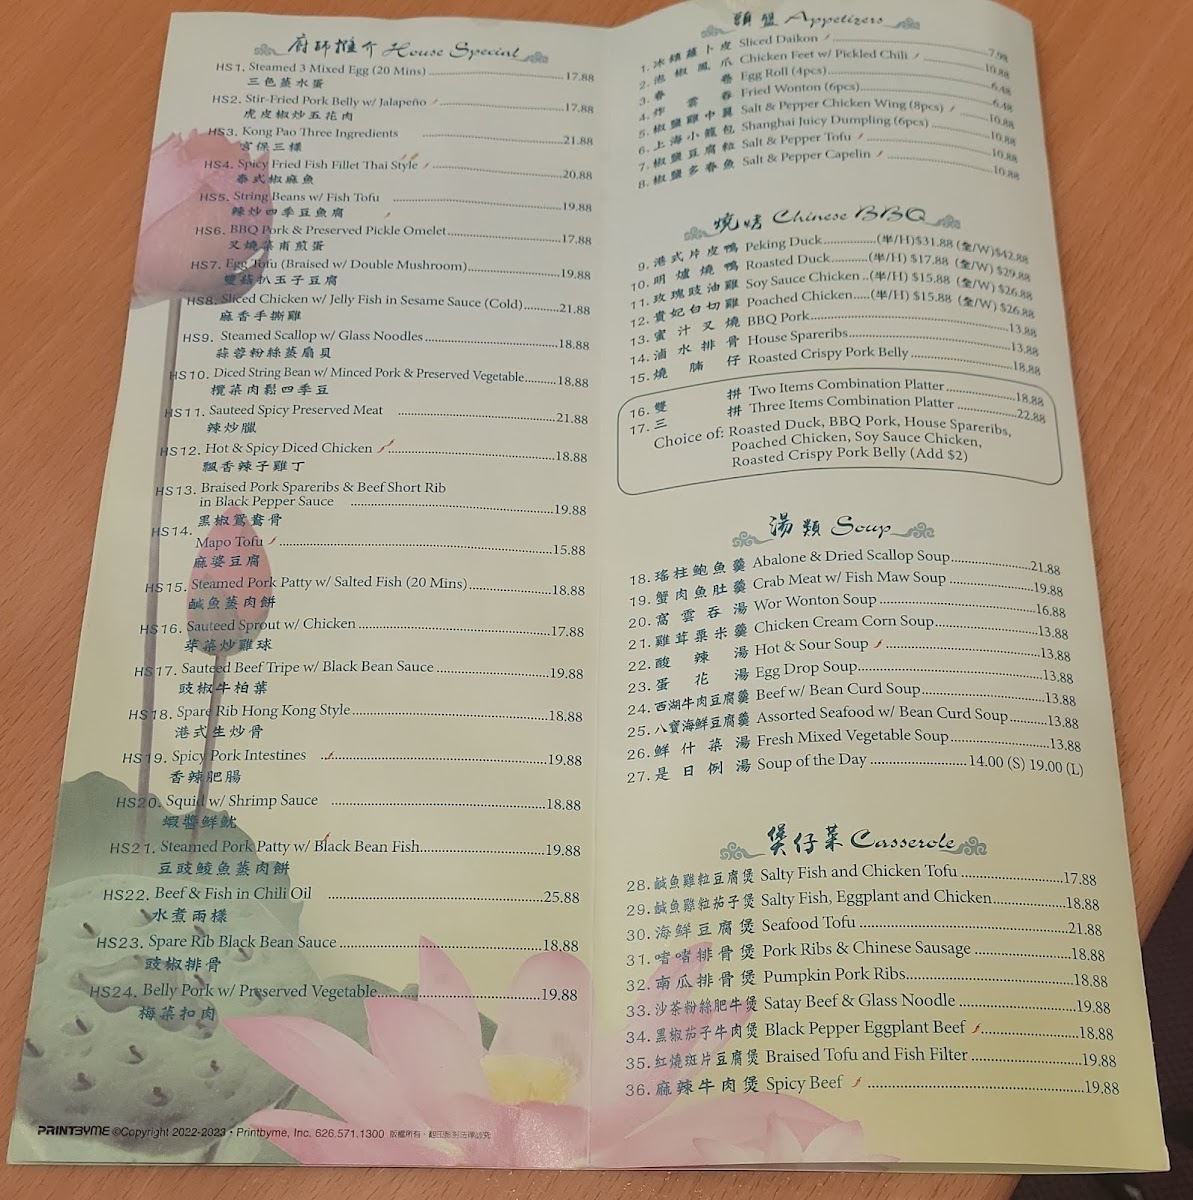 廚師推介 House Special
HS1. Steamed 3 Mixed Egg (20 Mins) 17.88
三色蒸水蛋
HS2. Stir-Fried Pork Belly w/ Jalapeño 17.88
虎皮椒炒五花肉
HS3. Kong Pao Three Ingredients 21.88
宮保三樣
HS4. Spicy Fried Fish Fillet Thai Style 20.88
泰式椒麻魚
HS5. String Beans w/ Fish Tofu 19.88
辣炒四季豆魚腐
HS6. BBQ Pork & Preserved Pickle Omelet 17.88
叉燒菜甫煎蛋
HS7. Egg Tofu (Braised w/ Double Mushroom) 19.88
雙菇扒玉子豆腐
HS8. Sliced Chicken w/ Jelly Fish in Sesame Sauce (Cold) 21.88
麻香手撕雞
HS9. Steamed Scallop w/ Glass Noodles 18.88
蒜蓉粉絲蒸扇貝
HS10. Diced String Bean w/ Minced Pork & Preserved Vegetable 18.88
欖菜肉鬆四季豆
HS11. Sauteed Spicy Preserved Meat 21.88
辣炒臘
HS12. Hot & Spicy Diced Chicken 18.88
飄香辣子雞丁
HS13. Braised Pork Spareribs & Beef Short Rib
in Black Pepper Sauce 19.88
黑椒鴛鴦骨
HS14. Mapo Tofu 15.88
麻婆豆腐
HS15. Steamed Pork Patty w/ Salted Fish (20 Mins) 18.88
鹹魚蒸肉餅
HS16. Sauteed Sprout w/ Chicken 17.88
芽菜炒雞球
HS17. Sauteed Beef Tripe w/ Black Bean Sauce 19.88
豉椒牛柏葉
HS18. Spare Rib Hong Kong Style 18.88
港式生炒骨
HS19. Spicy Pork Intestines 19.88
香辣肥腸
HS20. Squid w/ Shrimp Sauce 18.88
蝦醬鮮魷
HS21. Steamed Pork Patty w/ Black Bean Fish 19.88
豆豉鯪魚蒸肉餅
HS22. Beef & Fish in Chili Oil 25.88
水煮兩樣
HS23. Spare Rib Black Bean Sauce 18.88
豉椒排骨
HS24. Belly Pork w/ Preserved Vegetable 19.88
梅菜扣肉
PRINTBYME ©Copyright 2022-2023 • Printbyme, Inc. 626.571.1300 版權所有‧翻印影印法律訪究
頭盤 Appetizers
1. 冰鎮蘿卜皮 Sliced Daikon 7.98
2. 泡椒鳳爪 Chicken Feet w/ Pickled Chili 10.88
3. 春卷 Egg Roll (4pcs) 6.48
4. 炸雲吞 Fried Wonton (6pcs) 6.48
5. 椒鹽雞中翼 Salt & Pepper Chicken Wing (8pcs) 10.88
6. 上海小籠包 Shanghai Juicy Dumpling (6pcs) 10.88
7. 椒鹽豆腐粒 Salt & Pepper Tofu 10.88
8. 椒鹽多春魚 Salt & Pepper Capelin 10.88
燒烤 Chinese BBQ
9. 港式片皮鴨 Peking Duck (半/H)$31.88 (全/W)$42.88
10. 明爐燒鴨 Roasted Duck (半/H) $17.88 (全/W) $29.88
11. 玫瑰豉油雞 Soy Sauce Chicken (半/H) $15.88 (全/W) $26.88
12. 貴妃白切雞 Poached Chicken (半/H) $15.88 (全/W) $26.88
13. 蜜汁叉燒 BBQ Pork 13.88
14. 滷水排骨 House Spareribs 13.88
15. 燒腩仔 Roasted Crispy Pork Belly 18.88
16. 雙拼 Two Items Combination Platter 18.88
17. 三拼 Three Items Combination Platter 22.88
Choice of: Roasted Duck, BBQ Pork, House Spareribs,
Poached Chicken, Soy Sauce Chicken,
Roasted Crispy Pork Belly (Add $2)
湯類 Soup
18. 瑤柱鮑魚羹 Abalone & Dried Scallop Soup 21.88
19. 蟹肉魚肚羹 Crab Meat w/ Fish Maw Soup 19.88
20. 窩雲吞湯 Wor Wonton Soup 16.88
21. 雞茸粟米羹 Chicken Cream Corn Soup 13.88
22. 酸辣湯 Hot & Sour Soup 13.88
23. 蛋花湯 Egg Drop Soup 13.88
24. 西湖牛肉豆腐羹 Beef w/ Bean Curd Soup 13.88
25. 八寶海鮮豆腐羹 Assorted Seafood w/ Bean Curd Soup 13.88
26. 鮮什菜湯 Fresh Mixed Vegetable Soup 13.88
27. 是日例湯 Soup of the Day 14.00 (S) 19.00 (L)
煲仔菜 Casserole
28. 鹹魚雞粒豆腐煲 Salty Fish and Chicken Tofu 17.88
29. 鹹魚雞粒茄子煲 Salty Fish, Eggplant and Chicken 18.88
30. 海鮮豆腐煲 Seafood Tofu 21.88
31. 啫啫排骨煲 Pork Ribs & Chinese Sausage 18.88
32. 南瓜排骨煲 Pumpkin Pork Ribs 18.88
33. 沙茶粉絲肥牛煲 Satay Beef & Glass Noodle 19.88
34. 黑椒茄子牛肉煲 Black Pepper Eggplant Beef 18.88
35. 紅燒斑片豆腐煲 Braised Tofu and Fish Filter 19.88
36. 麻辣牛肉煲 Spicy Beef 19.88